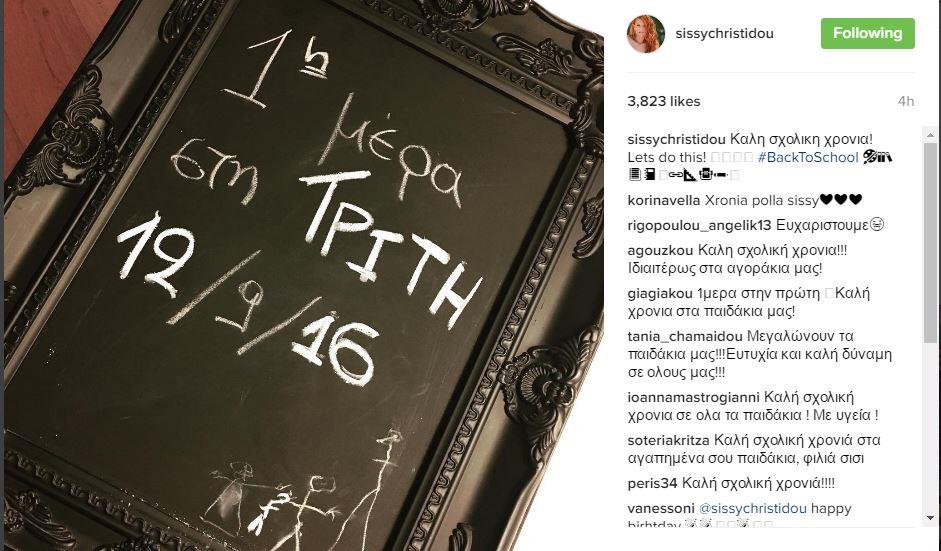 1η
μέρα
στη
ΤΡΙΤΗ
12/9/16
sissychristidou
Following
3,823 likes
4h
sissychristidou Καλη σχολικη χρονια!
Lets do this! #BackToSchool
korinavella Xronia polla sissy🖤🖤🖤
rigopoulou_angelik13 Ευχαριστουμε
agouzkou Καλη σχολική χρονια!!!
Ιδιαιτέρως στα αγοράκια μας!
giagiakou 1μερα στην πρώτη Καλή
χρονια στα παιδάκια μας!
tania_chamaidou Μεγαλώνουν τα
παιδάκια μας!!!Ευτυχία και καλή δύναμη
σε ολους μας!!!
ioannamastrogianni Καλή σχολική
χρονια σε ολα τα παιδάκια ! Με υγεία !
soteriakritza Καλή σχολική χρονιά στα
αγαπημένα σου παιδάκια, φιλιά σισι
peris34 Καλή σχολική χρονιά!!!!
vanessoni @sissychristidou happy
birhtday